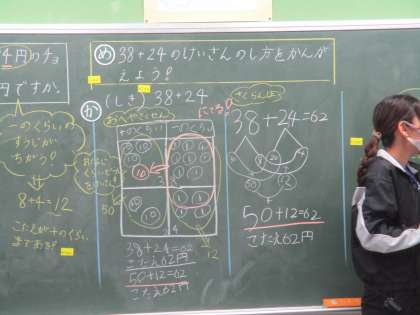 4円のチョ
円ですか。
一のくらいの
すうじが
ちがう!
8+4=12
こたえが十のくらい
まである!
め 38+24のけいさんのし方をかんが
えよう!
か (しき) 38+24
十のくらい 一のくらい
50
12
38+24=62
こたえ62円
50+12=62
こたえ62円
さくらんぼ
38+24=62
50+12=62
こたえ62円